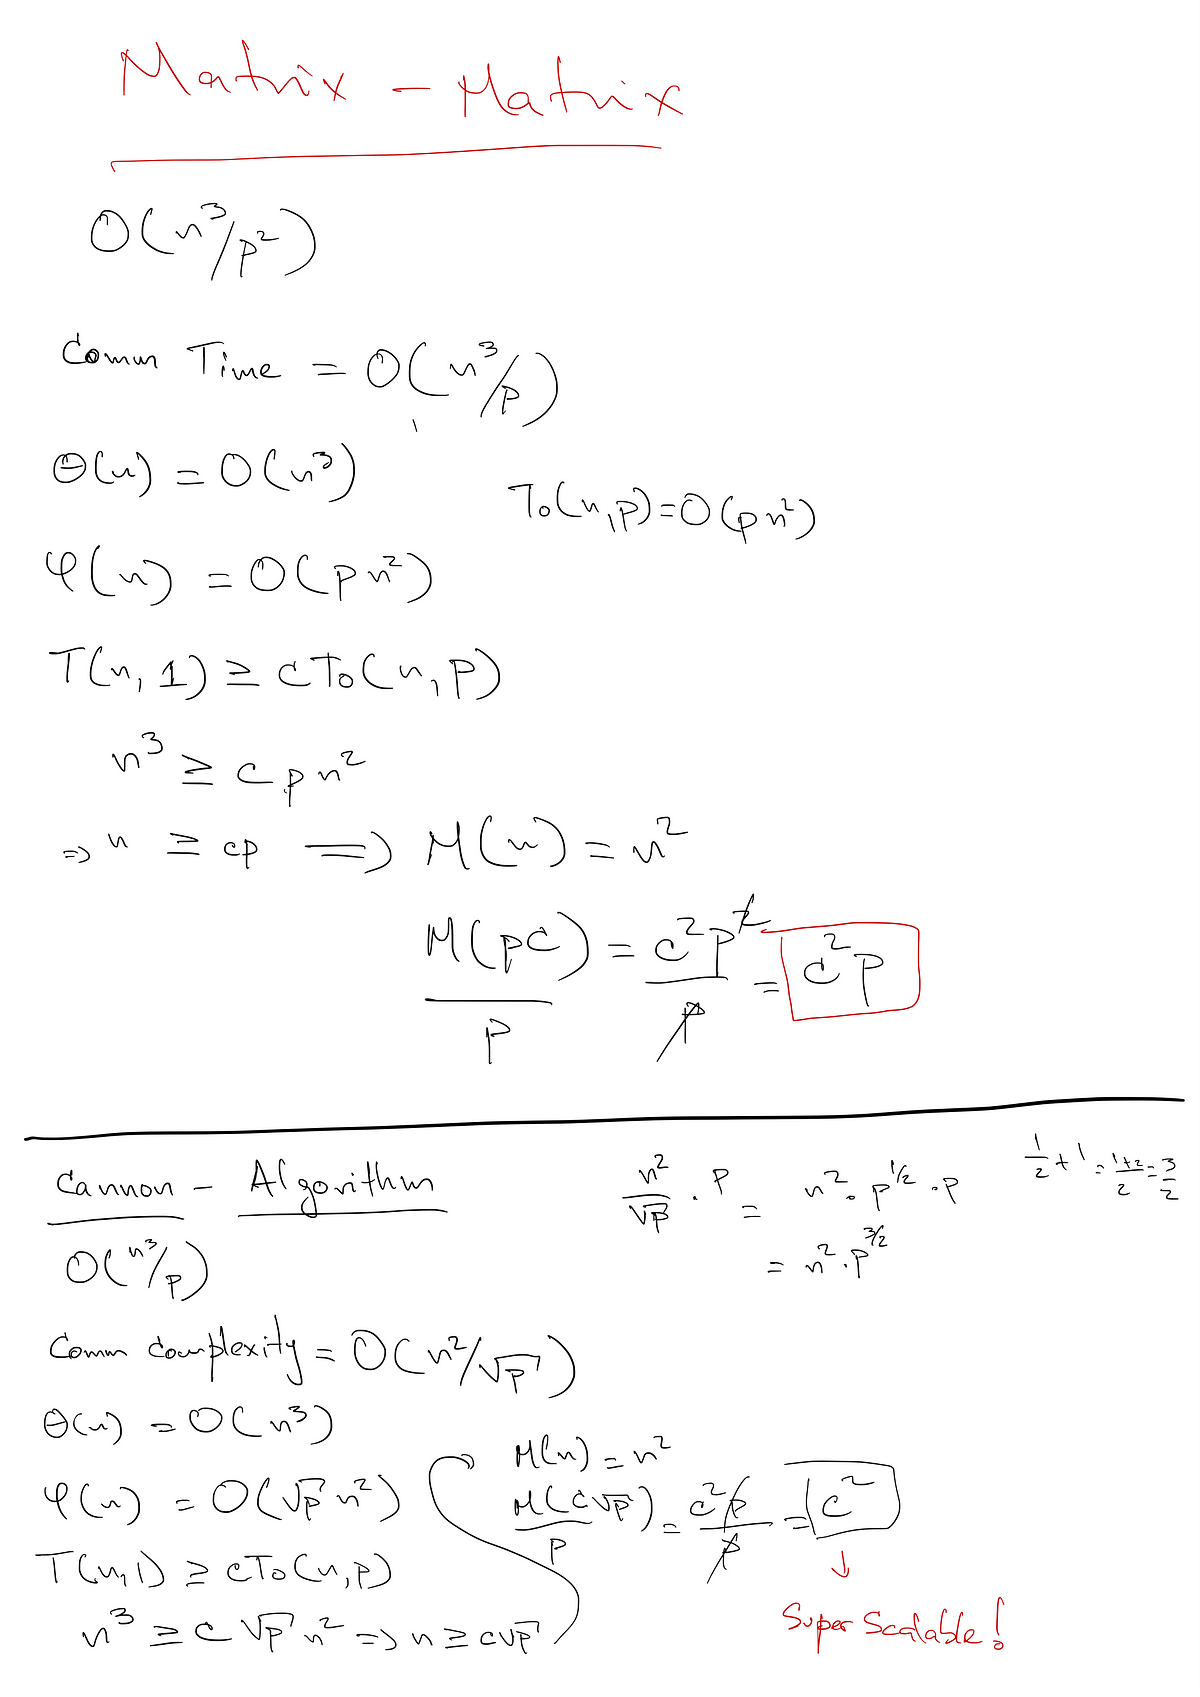 Matrix - Matrix
O(n³/p²)
Comm Time = O(n³/p)
Θ(n) = O(n³)
To(n,p)=O(pn²)
φ(n) = O(pn²)
T(n,1) ≥ cTo(n,p)
n³ ≥ cpn²
=> n ≥ cp => M(n) = n²
M(pc)/p = c²p²/p = c²p
Cannon - Algorithm
n²/√p . p = n² . p^1/2 . p
1/2 + 1 = 1+2/2 = 3/2
= n² . p^3/2
O(n³/p)
Comm complexity = O(n²/√p)
Θ(n) = O(n³)
φ(n) = O(√p n²)
T(n,1) ≥ cTo(n,p)
n³ ≥ c√p n² => n ≥ c√p
M(n) = n²
M(c√p)/p = c²p/p = c²
Super Scalable!